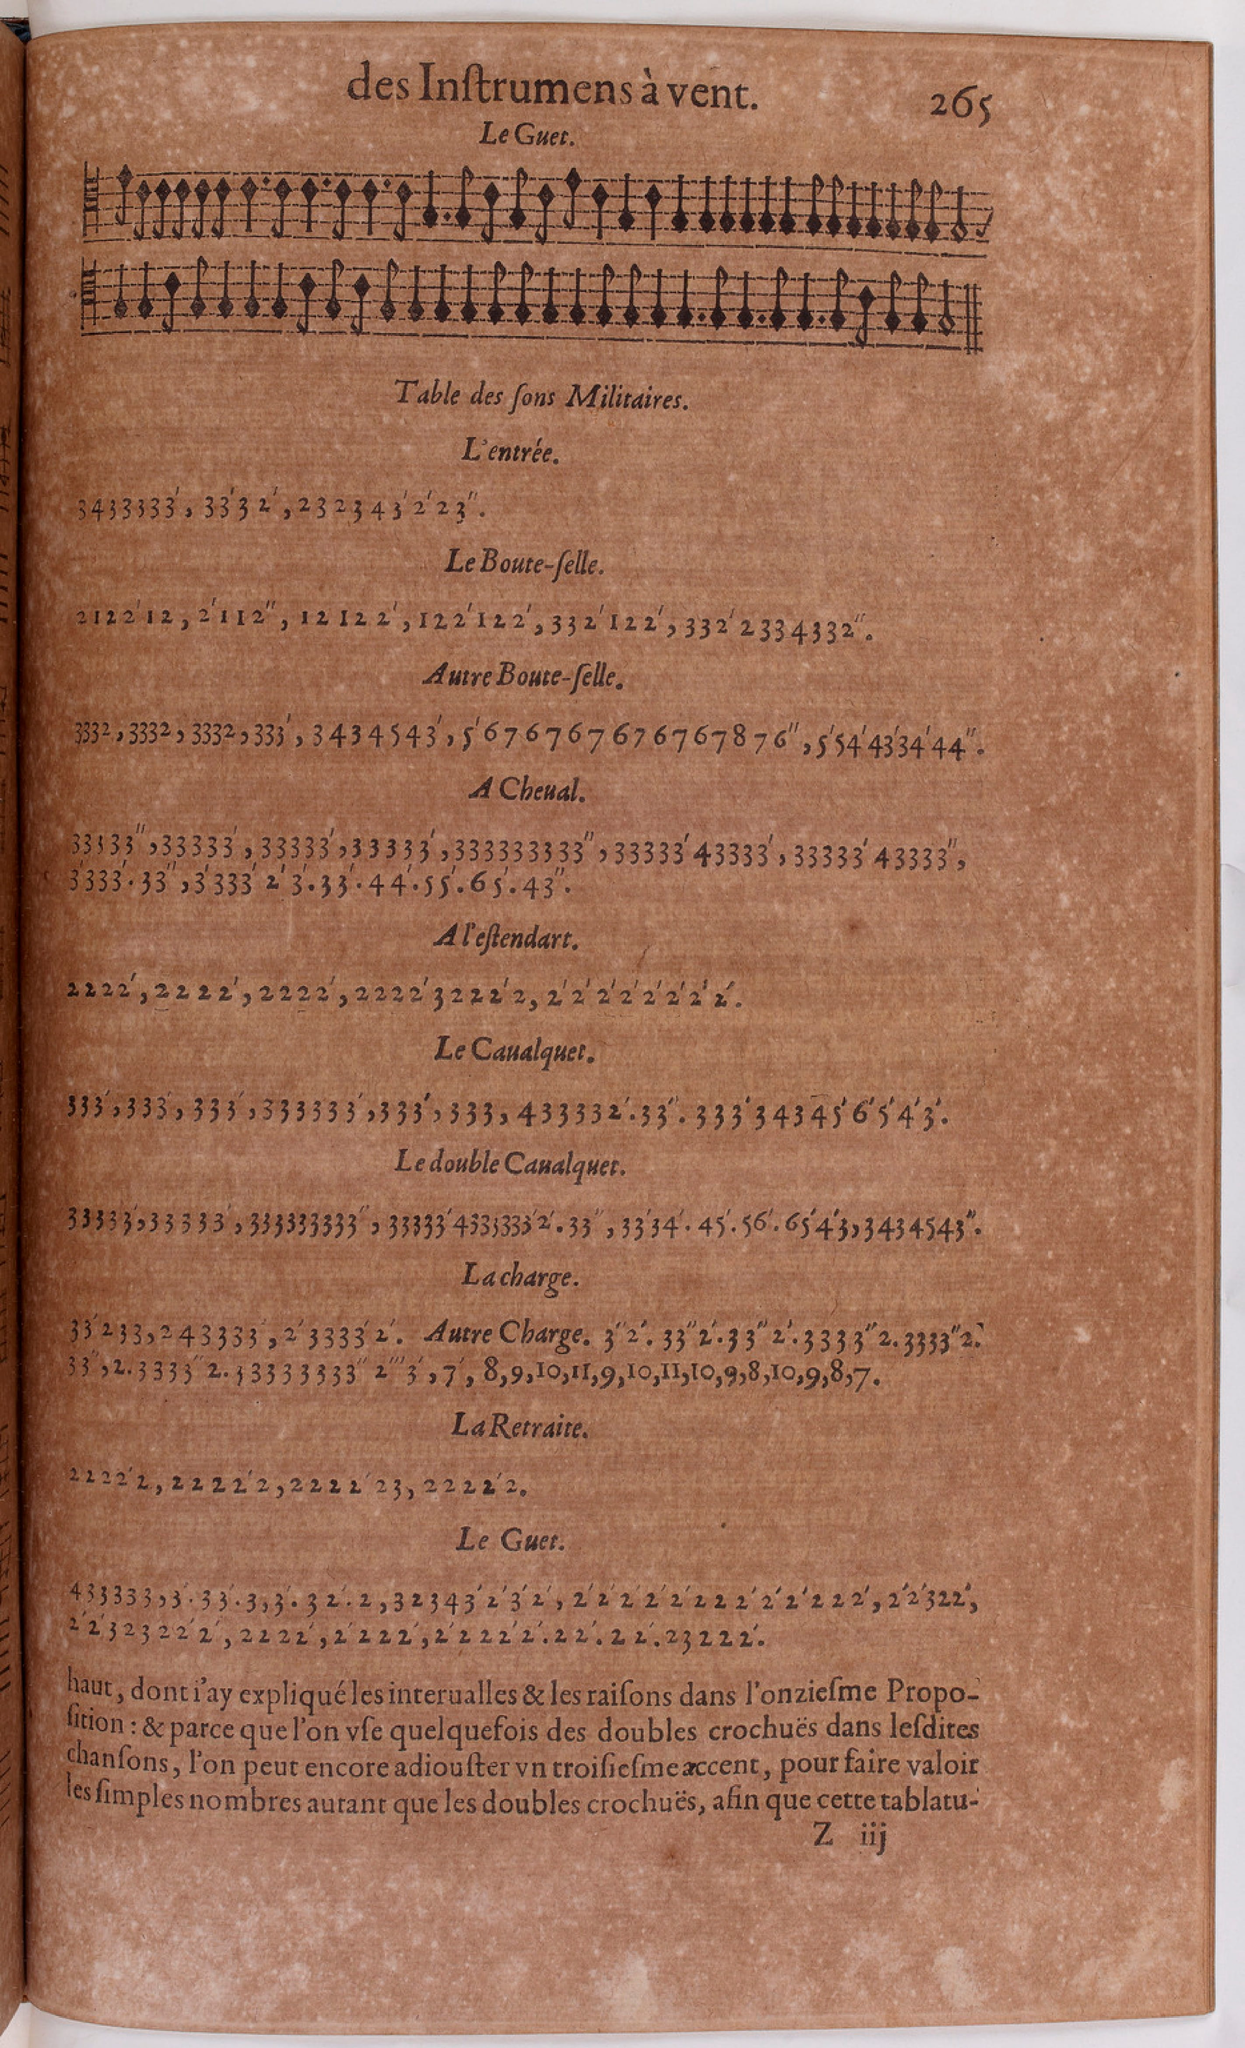 des Inſtrumens à vent.
265
Le Guet.
Table des ſons Militaires.
L'entrée.
3433333', 33'32', 232343'2'23''.
Le Boute-ſelle.
2122'12, 2'112'', 12122', 122'122', 332'122', 332'2334332''.
Autre Boute-ſelle.
3332, 3332, 3332, 333', 3434543', 5'67676767676767876'', 5'54'43'34'44''.
A Cheual.
33333'', 33333', 33333', 33333', 333333333'', 33333'43333', 33333'43333'',
3'333'.33'', 3'333'2'3'.33'.44'.55'.65'.43''.
A l'eſtendart.
2222', 2222', 2222', 2222'3222'2, 2'2'2'2'2'2'2'2'.
Le Caualquet.
333', 333', 333', 333333', 333', 333, 433332'.33''. 333'34345'6'5'4'3'.
Le double Caualquet.
33333', 33333', 333333333'', 33333'4333333'2'.33'', 33'34'.45'.56'.65'4'3, 3434543''.
La charge.
33'233, 243333', 2'3333'2'. Autre Charge. 3''2'. 33''2'.33''2'.3333''2.3333''2.
33'', 2.3333''2.33333333''2'''3', 7', 8, 9, 10, 11, 9, 10, 11, 10, 9, 8, 10, 9, 8, 7.
La Retraite.
2222'2, 2222'2, 2222'23, 2222'2.
Le Guet.
433333, 3'.33'.3, 3'.32'.2, 32343'2'3'2', 2'2'2'2'2'222'2'2'222', 2'2'322',
2'2'32322'2', 2222', 2'222', 2'222'2'.22'.22'.23222'.
haut, dont i'ay expliqué les interualles & les raiſons dans l'onzieſme Propo-
ſition : & parce que l'on vſe quelquefois des doubles crochuës dans leſdites
chanſons, l'on peut encore adiouſter vn troiſieſme accent, pour faire valoir
les ſimples nombres autant que les doubles crochuës, afin que cette tablatu-
Z iij